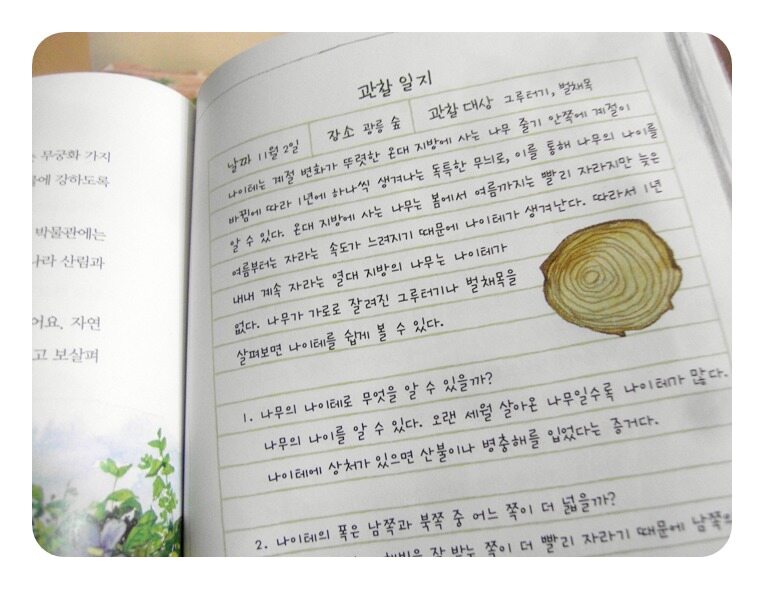 무궁화 가지
강하도록
박물관에는
나라 산림과
어요. 자연
고 보살펴
관찰 일지
날짜 11월 2일 장소 광릉 숲 관찰 대상 그루터기, 벌채목
나이테는 계절 변화가 뚜렷한 온대 지방에 사는 나무 줄기 안쪽에 계절이
바뀜에 따라 1년에 하나씩 생겨나는 독특한 무늬로, 이를 통해 나무의 나이를
알 수 있다. 온대 지방에 사는 나무는 봄에서 여름까지는 빨리 자라지만 늦은
여름부터는 자라는 속도가 느려지기 때문에 나이테가 생겨난다. 따라서 1년
내내 계속 자라는 열대 지방의 나무는 나이테가
없다. 나무가 가로로 잘려진 그루터기나 벌채목을
살펴보면 나이테를 쉽게 볼 수 있다.
1. 나무의 나이테로 무엇을 알 수 있을까?
나무의 나이를 알 수 있다. 오랜 세월 살아온 나무일수록 나이테가 많다.
나이테에 상처가 있으면 산불이나 병충해를 입었다는 증거다.
2. 나이테의 폭은 남쪽과 북쪽 중 어느 쪽이 더 넓을까?
햇빛을 잘 받는 쪽이 더 빨리 자라기 때문에 남쪽의